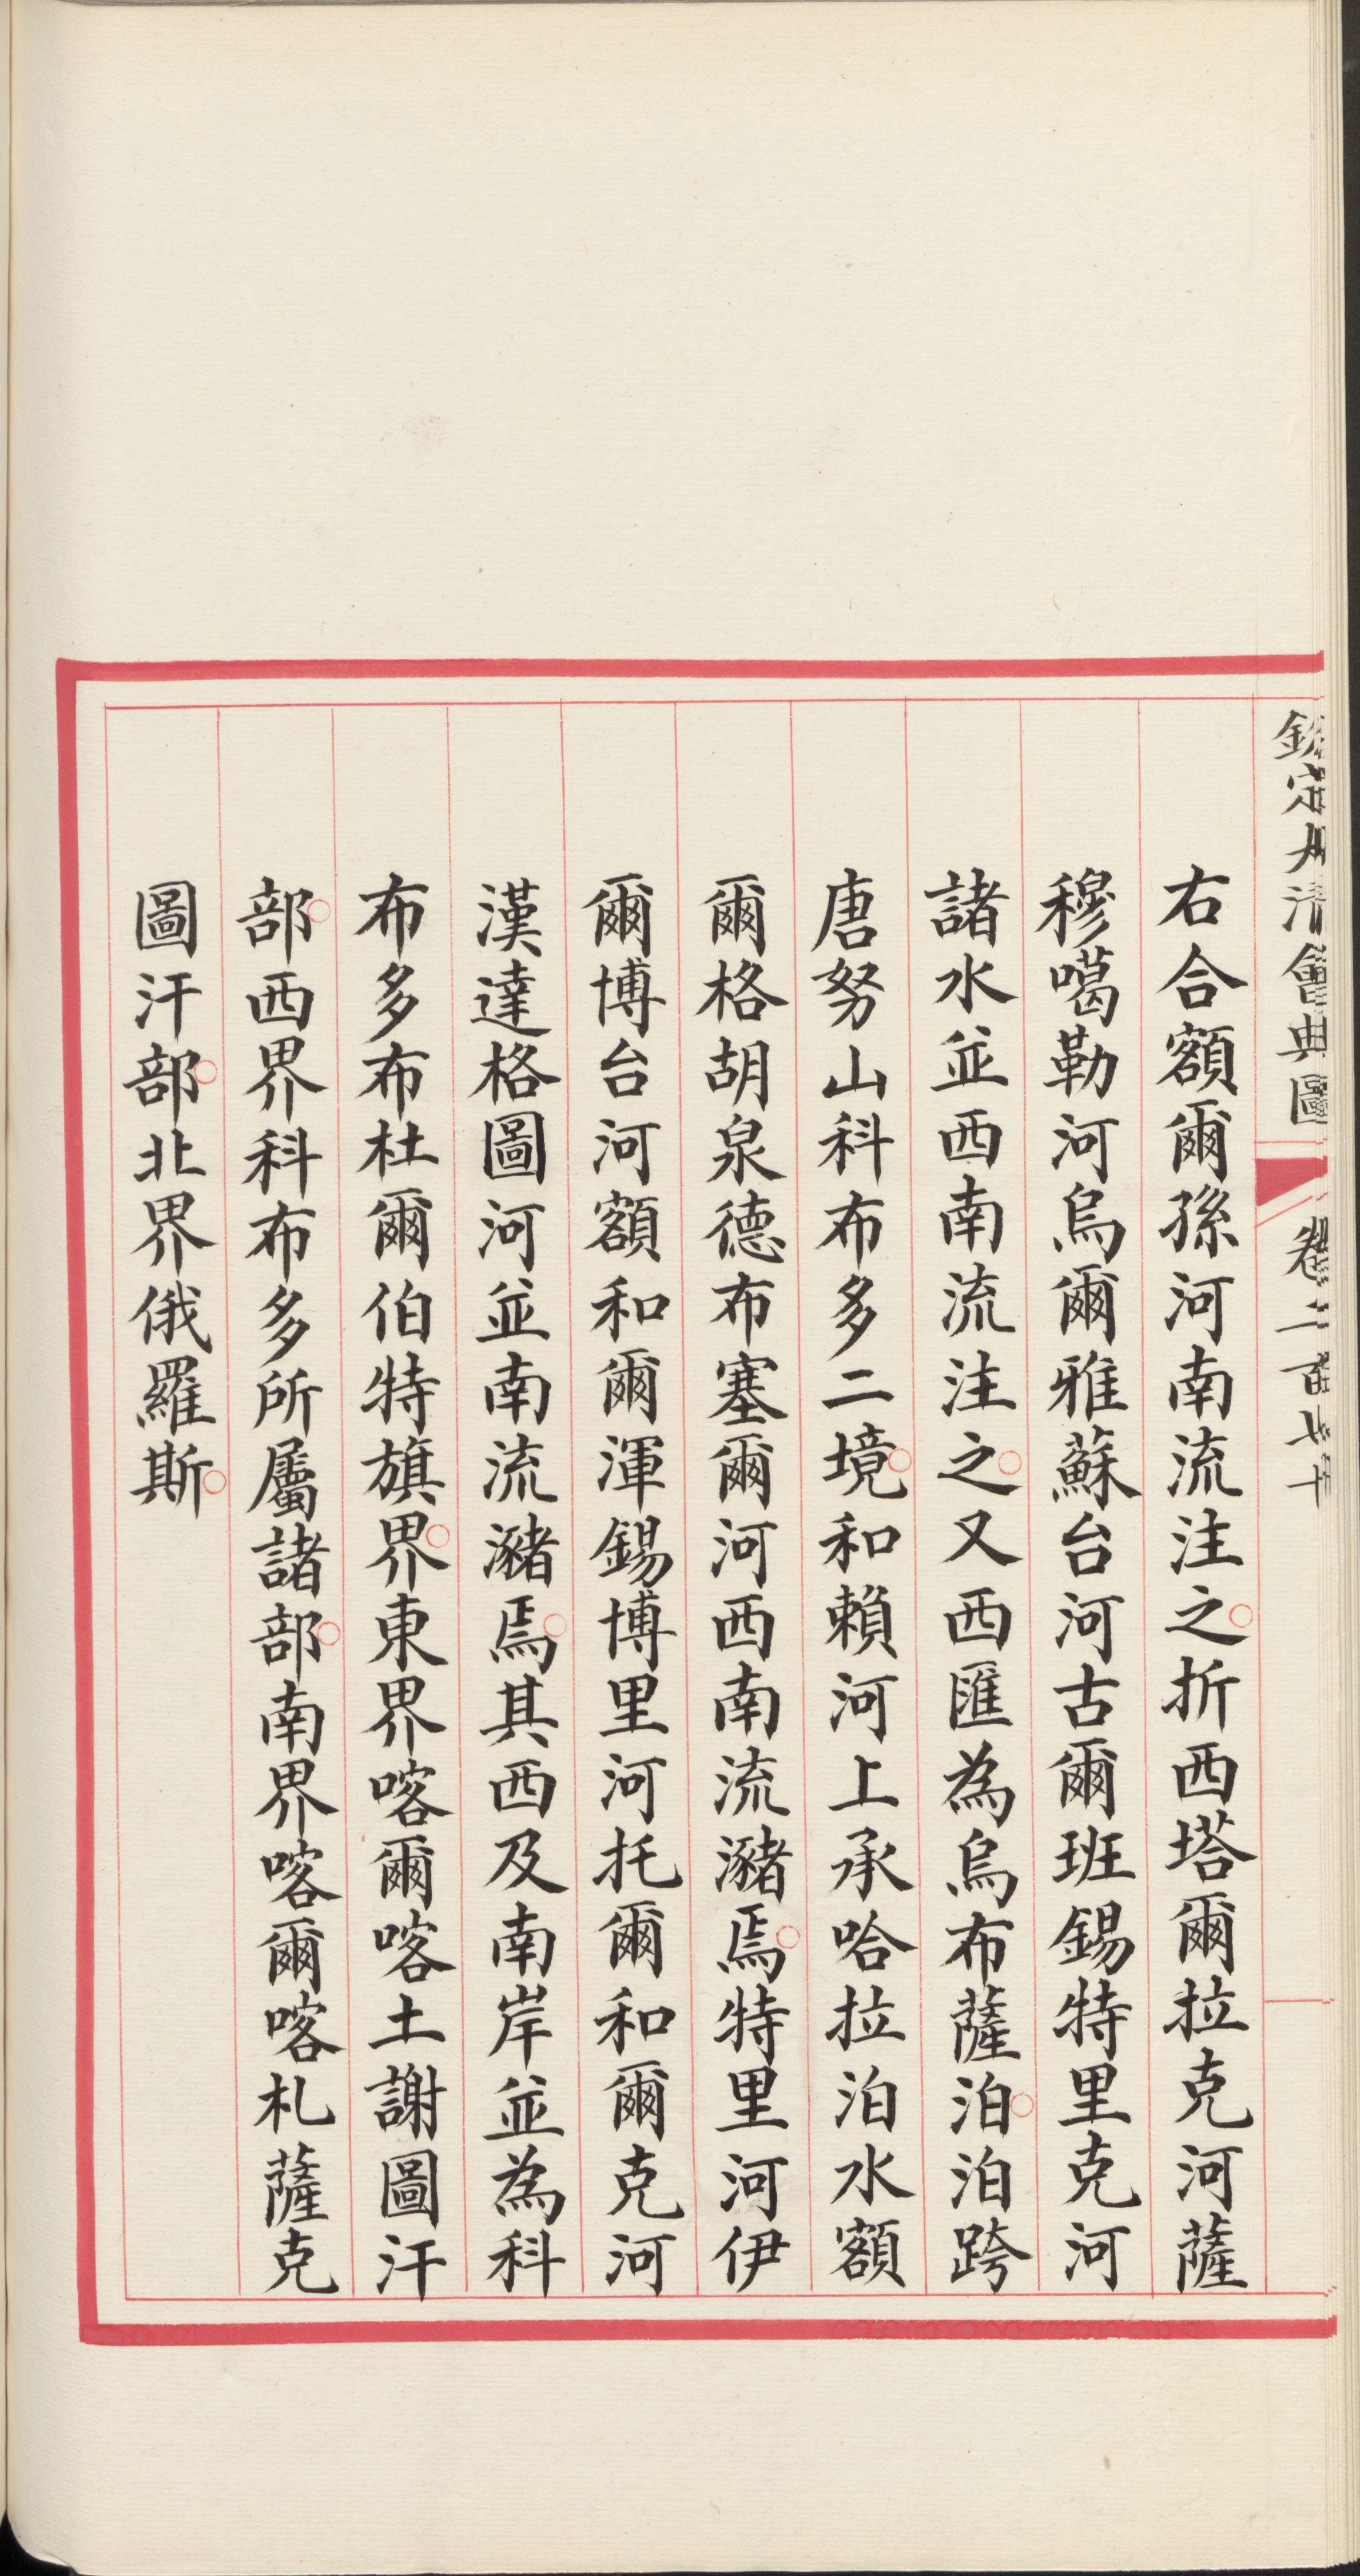 欽定大清會典圖 卷二百七十
右合額爾孫河南流注之折西塔爾拉克河薩
穆噶勒河烏爾雅蘇台河古爾班錫特里克河
諸水並西南流注之又西匯為烏布薩泊泊跨
唐努山科布多二境和賴河上承哈拉泊水額
爾格胡泉德布塞爾河西南流瀦焉特里河伊
爾博台河額和爾渾錫博里河托爾和爾克河
漢達格圖河並南流瀦焉其西及南岸並為科
布多布杜爾伯特旗界東界喀爾喀土謝圖汗
部西界科布多所屬諸部南界喀爾喀札薩克
圖汗部北界俄羅斯